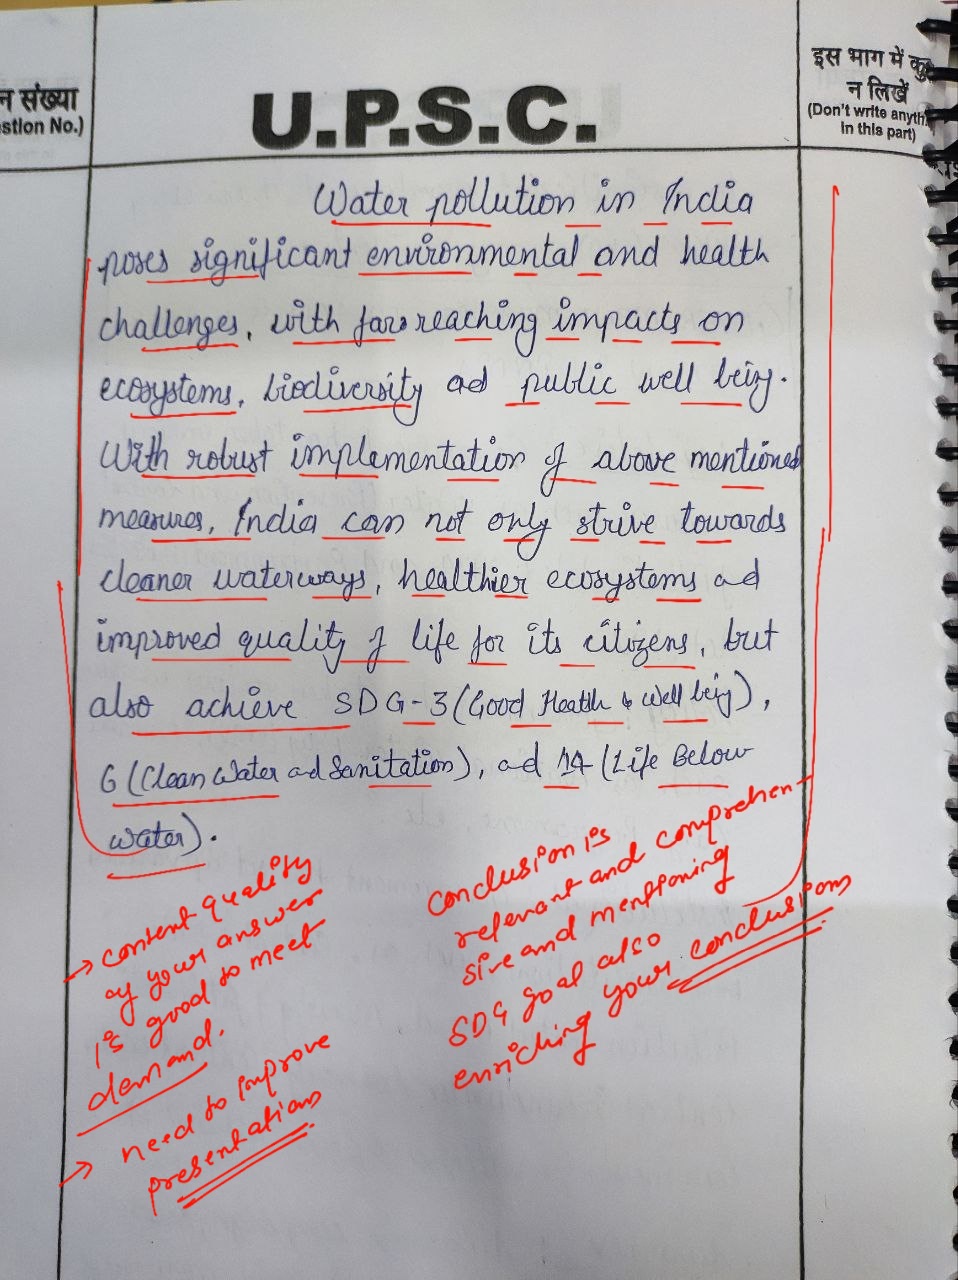 न संख्या
stion No.)
U.P.S.C.
इस भाग में कुछ
न लिखें
(Don't write anyth
in this part)
Water pollution in India
poses significant environmental and health
challenges, with far reaching impacts on
ecosystems, biodiversity ad public well being.
With robust implementation of above mentioned
measures, India can not only strive towards
cleaner waterways, healthier ecosystems ad
improved quality of life for its citizens, but
also achieve SDG-3 (Good Health & Well being),
6 (Clean Water ad Sanitation), ad 14 (Life Below
water).
→ content quality
of your answer
is good to meet
demand.
→ need to improve
presentations
conclusion is
relevant and comprehen-
sive and mentioning
SDG goal also
enriching your conclusions